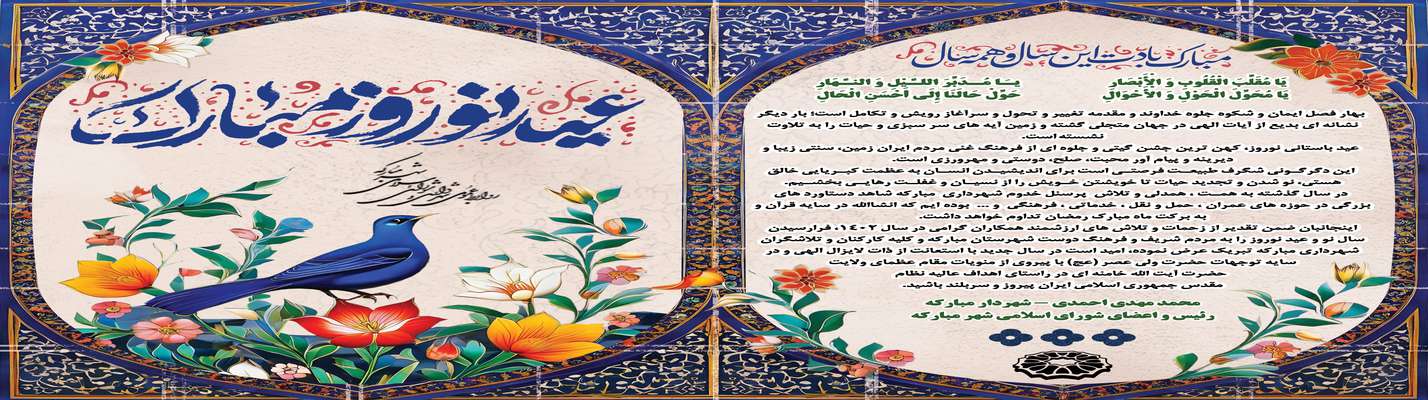 عید نوروز مبارک
روابط عمومی شهرداری و شورای اسلامی شهر مبارکه
مبارک بادت این سال و همه سال
یَا مُقَلِّبَ الْقُلُوبِ وَ الْأَبْصَارِ یَا مُدَبِّرَ اللَّیْلِ وَ النَّهَارِ
یَا مُحَوِّلَ الْحَوْلِ وَ الْأَحْوَالِ حَوِّلْ حَالَنَا إِلَی أَحْسَنِ الْحَالِ
بهار فصل ایمان و شکوه جلوه خداوند و مقدمه تغییر و تحول و سرآغاز رویش و تکامل است؛ بار دیگر
نشانه ای بدیع از آیات الهی در جهان متجلی گشته و زمین آیه های سر سبزی و حیات را به تلاوت
نشسته است.
عید باستانی نوروز، کهن ترین جشن گیتی و جلوه ای از فرهنگ غنی مردم ایران زمین، سنتی زیبا و
دیرینه و پیام آور محبت، صلح، دوستی و مهرورزی است.
این دگرگونی شگرف طبیعت فرصتی است برای اندیشیدن انسان به عظمت کبریایی خالق
هستی، نو شدن و تجدید حیات تا خویشتن خویش را از نسیان و غفلت رهایی بخشیم.
در سال گذشته به همت ، همدلی و تلاش پرسنل خدوم شهرداری مبارکه شاهد دستاورد های
بزرگی در حوزه های عمران ، حمل و نقل ، خدماتی ، فرهنگی و ... بوده ایم که انشاالله در سایه قرآن و
به برکت ماه مبارک رمضان تداوم خواهد داشت.
اینجانبان ضمن تقدیر از زحمات و تلاش های ارزشمند همکاران گرامی در سال ۱۴۰۲، فرارسیدن
سال نو و عید نوروز را به مردم شریف و فرهنگ دوست شهرستان مبارکه و کلیه کارکنان و تلاشگران
شهرداری مبارکه تبریک عرض نموده، امید است در سال جدید با استعانت از ذات لایزال الهی و در
سایه توجهات حضرت ولی عصر (عج) با پیروی از منویات مقام عظمای ولایت
حضرت آیت الله خامنه ای در راستای اهداف عالیه نظام
مقدس جمهوری اسلامی ایران پیروز و سربلند باشید.
محمد مهدی احمدی – شهردار مبارکه
رئیس و اعضای شورای اسلامی شهر مبارکه